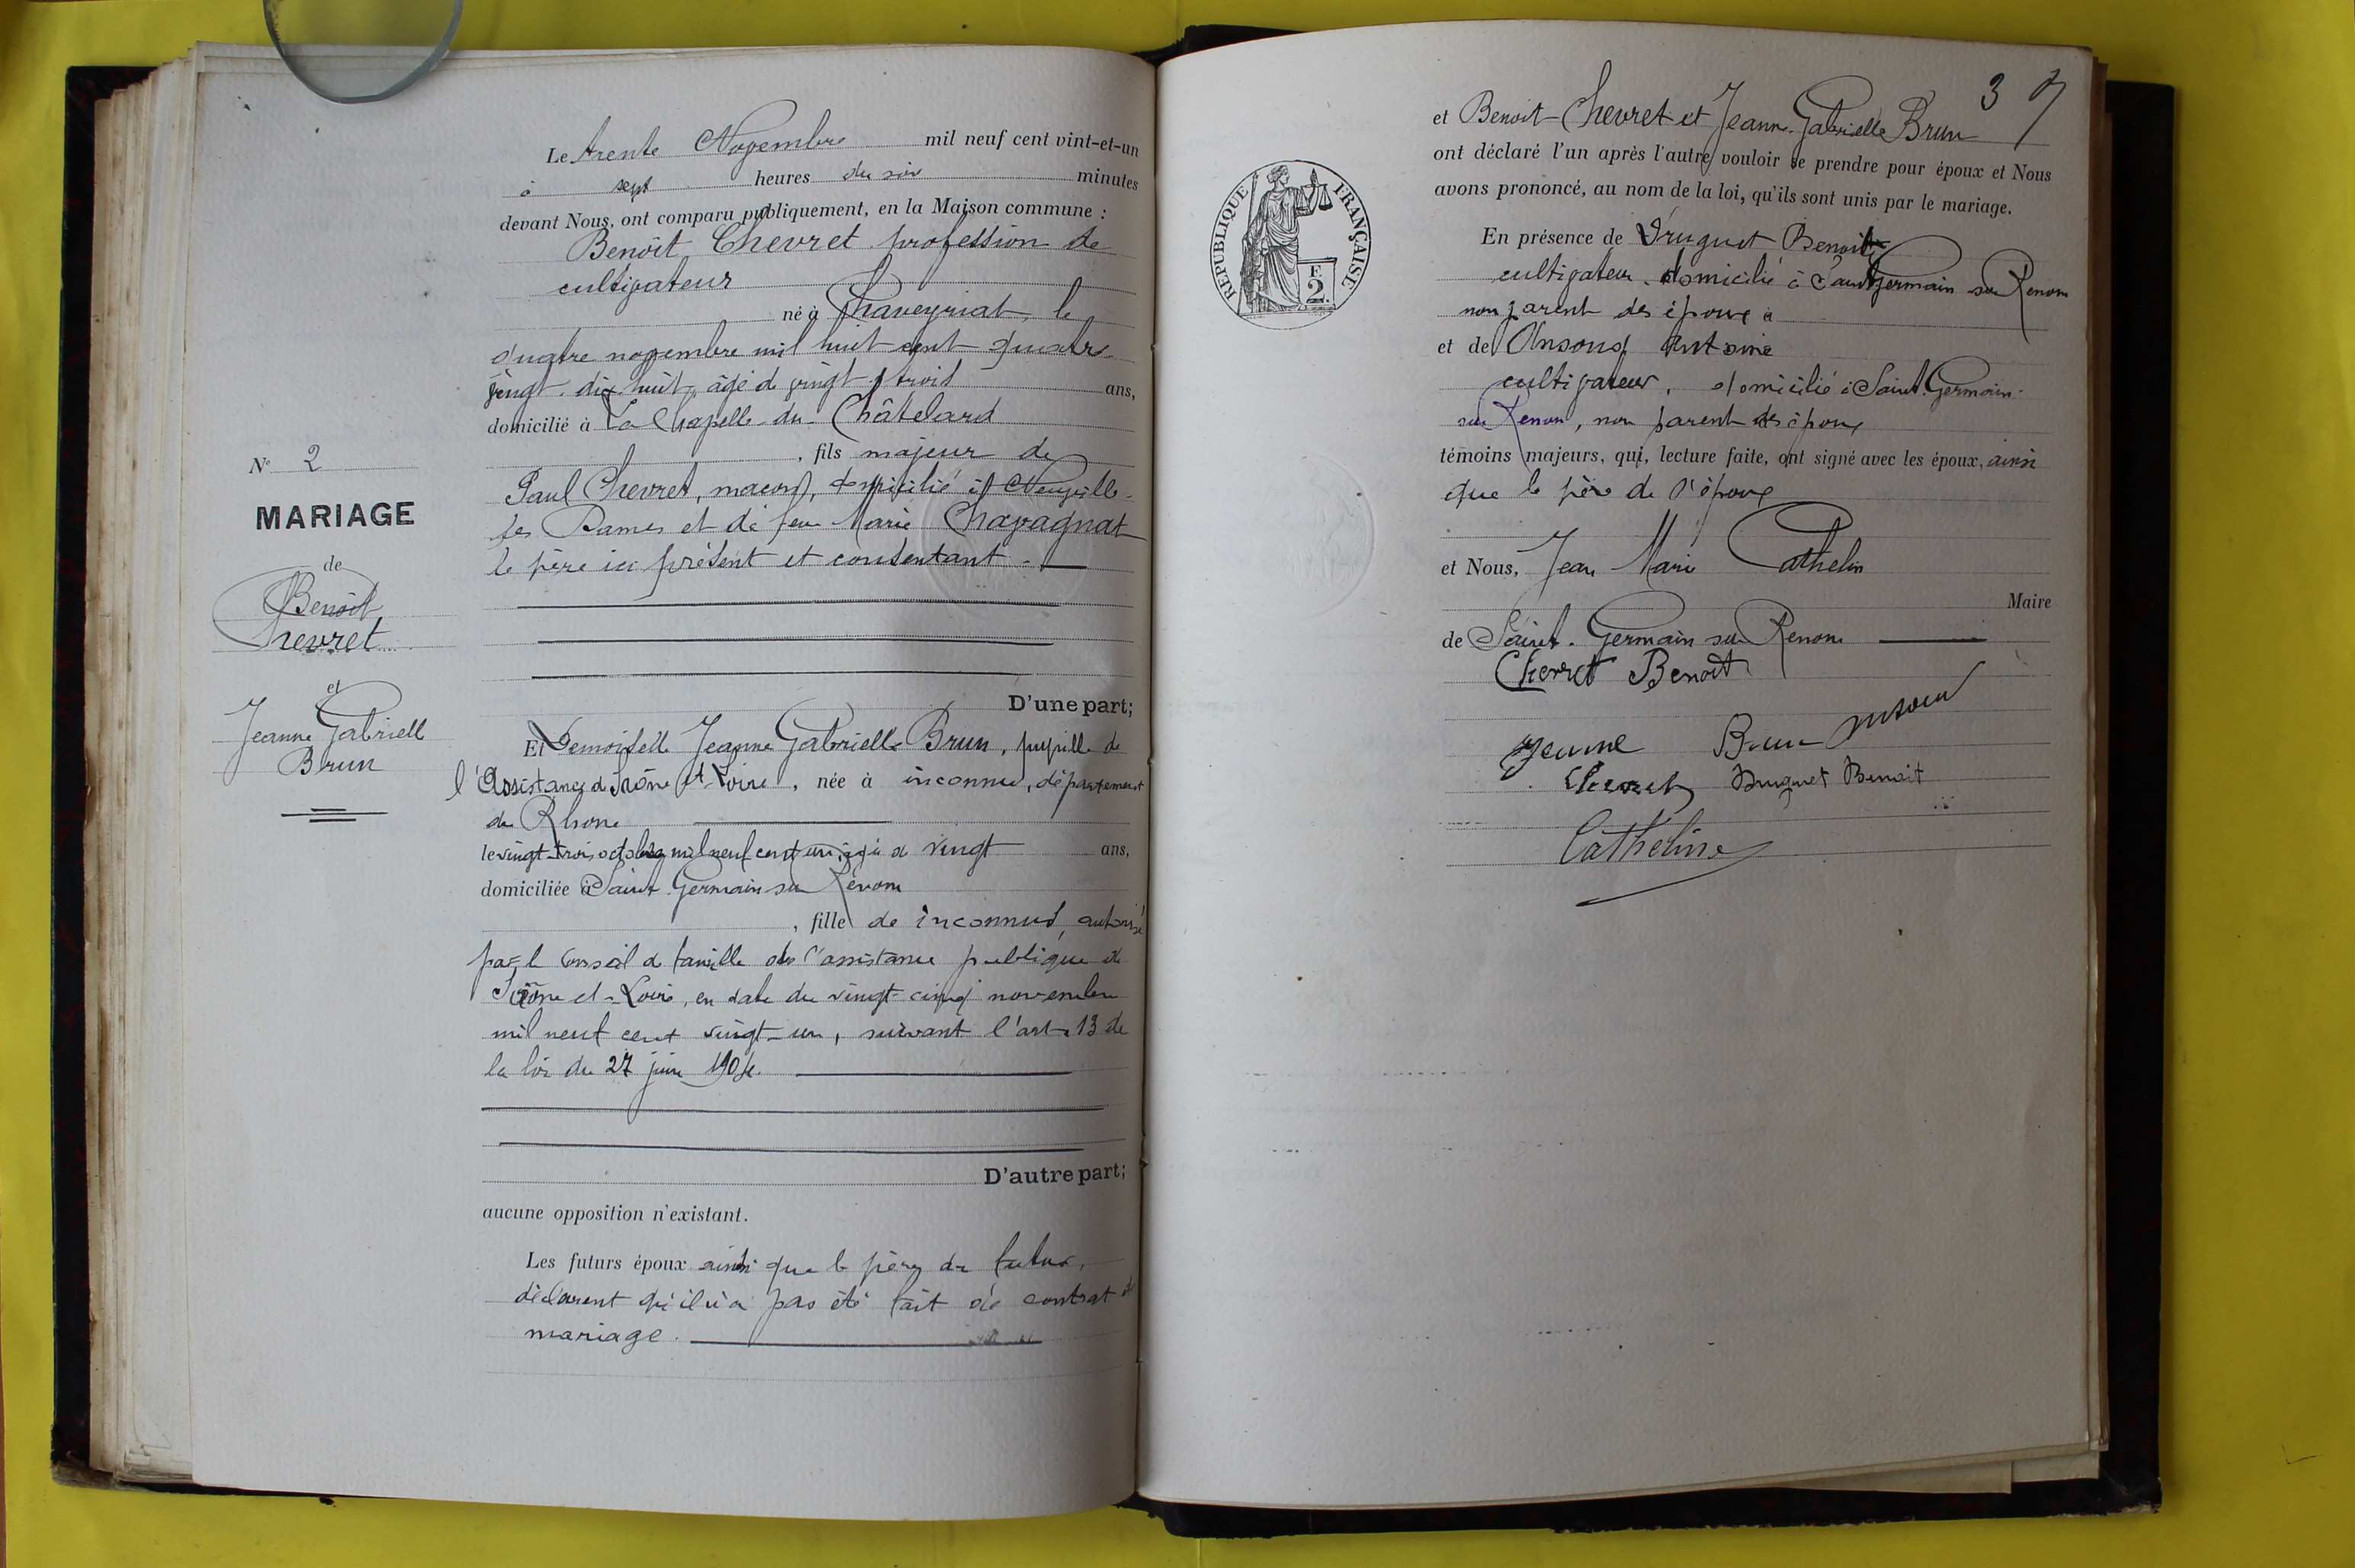 N° 2
MARIAGE
de
Benoît
Chevret
et
Jeanne Gabrielle
Brun
Le trente Novembre mil neuf cent vint-et-un
à sept heures du soir minutes
devant Nous, ont comparu publiquement, en la Maison commune :
Benoît Chevret profession de
cultivateur
né à Chaveyriat, le
quatre novembre mil huit cent quatre
vingt dix huit, âgé de vingt trois ans,
domicilié à La Chapelle-du-Châtelard
, fils majeur de
Paul Chevret, maçon, domicilié à Neuville-
les Dames et de feue Marie Chavagnat
le père ici présent et consentant
D'une part;
Et Demoiselle Jeanne Gabrielle Brun, pupille de
l'Assistance de Saône et Loire, née à inconnu, département
du Rhône
le vingt-trois octobre mil neuf cent un, âgée de vingt ans,
domiciliée à Saint Germain sur Renom
, fille de inconnus, autorisé
par le conseil de famille de l'assistance publique de
Saône et-Loire, en date du vingt-cinq novembre
mil neuf cent vingt-un, suivant l'art. 13 de
la loi du 27 juin 1904.
D'autre part;
aucune opposition n'existant.
Les futurs époux ainsi que le père du futur,
déclarent qu'il n'a pas été fait de contrat de
mariage.
37
et Benoit Chevret et Jeanne Gabrielle Brun
ont déclaré l'un après l'autre vouloir se prendre pour époux et Nous
avons prononcé, au nom de la loi, qu'ils sont unis par le mariage.
REPUBLIQUE FRANÇAISE
F.
2.
En présence de Druguet Benoit
cultivateur, domicilié à Saint Germain sur Renom
non parent des époux
et de Antoine
cultivateur, domicilié à Saint. Germain-
sur Renom, non parent des époux
témoins majeurs, qui, lecture faite, ont signé avec les époux, ainsi
que le père de l'époux
et Nous, Jean Marie Cathelin
Maire
de Saint-Germain sur Renom
Chevret Benoît
Jeanne Brun
Chevret Druguet Benoit
Cathelin